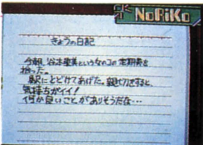 NoRiKo
きょうの日記
今朝、谷本聖美というコの定期券を
拾った。
駅にとどけてあげた。親切すると、
気持ちがイイ!
何か良いことがありそうだな…